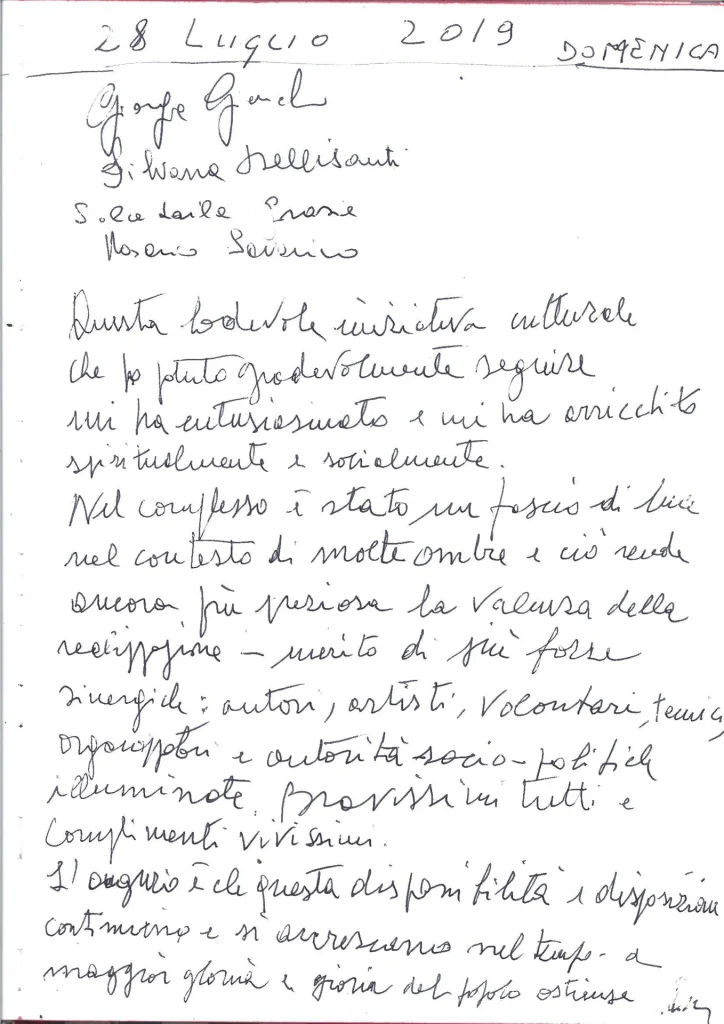 28 LUGLIO 2019 DOMENICA
Silvana Bellisanti
Rosario
Questa lodevole iniziativa culturale
che ho potuto gradevolmente seguire
mi ha entusiasmato e mi ha arricchito
spiritualmente e socialmente.
Nel complesso è stato un fascio di luce
nel contesto di molte ombre e ciò rende
ancora più preziosa la valenza della
realizzazione – merito di più forze
sinergiche: autori, artisti, volontari, tecnici,
organizzatori e autorità socio-politiche
illuminate. Bravissimi tutti e
complimenti vivissimi.
L'augurio è che questa disponibilità e disposizione
continuino e si accrescano nel tempo - a
maggior gloria e gioia del popolo ostiense